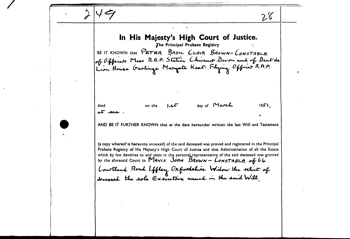 249 28
In His Majesty's High Court of Justice.
The Principal Probate Registry
BE IT KNOWN that PETER BASIL CLAIR BROWN-CONSTABLE
of Officers Mess R.A.F. Station Chivenor Devon and of Dent de
Lion House Garlinge Margate Kent Flying Officer R.A.F.
died on the 1st day of March 1951,
at sea
AND BE IT FURTHER KNOWN that at the date hereunder written the last Will and Testament
(a copy whereof is hereunto annexed) of the said deceased was proved and registered in the Principal
Probate Registry of His Majesty's High Court of Justice and that Administration of all the Estate
which by law devolves to and vests in the personal representative of the said deceased was granted
by the aforesaid Court to MAVIS JOAN BROWN-CONSTABLE of 64
Courtland Road Iffley Oxfordshire Widow the relict of
deceased the sole Executrix named in the said Will.